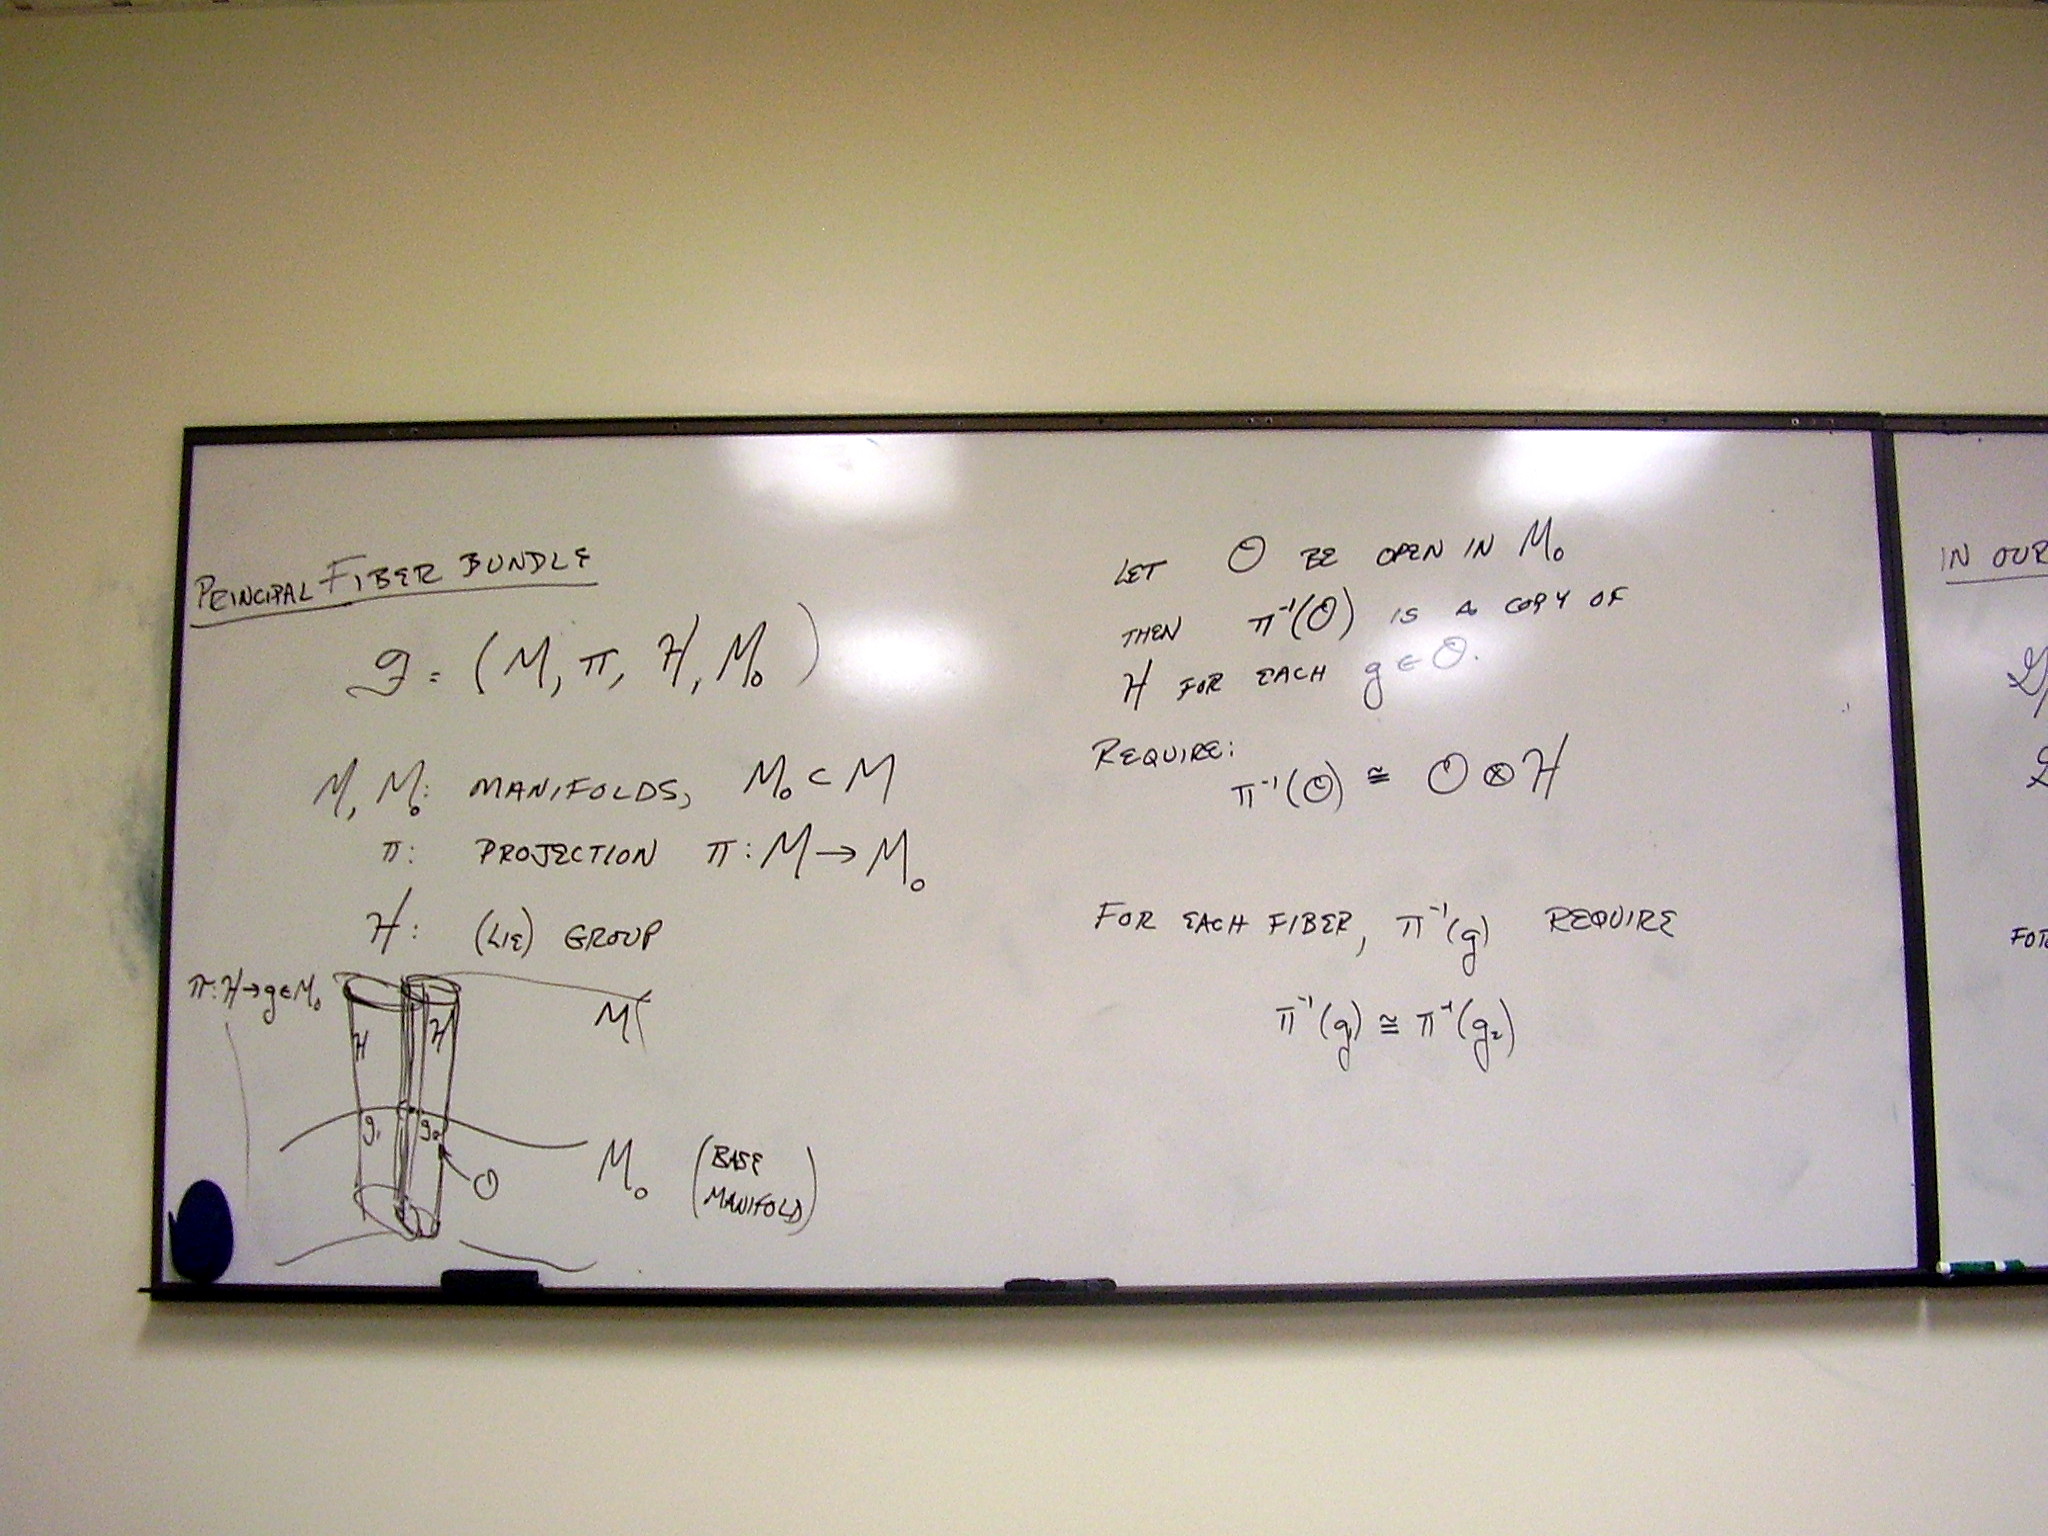 PRINCIPAL FIBER BUNDLE
𝒢 = (M, π, H, M₀)
M, M₀: MANIFOLDS, M₀ ⊂ M
π: PROJECTION π: M → M₀
H: (LIE) GROUP
π: H → g ∈ M₀
H H
M
g₁ g₂
O
M₀ (BASE
MANIFOLD)
LET O BE OPEN IN M₀
THEN π⁻¹(O) IS A COPY OF
H FOR EACH g ∈ O.
REQUIRE:
π⁻¹(O) ≅ O ⊗ H
FOR EACH FIBER, π⁻¹(g) REQUIRE
π⁻¹(g₁) ≅ π⁻¹(g₂)
IN OUR